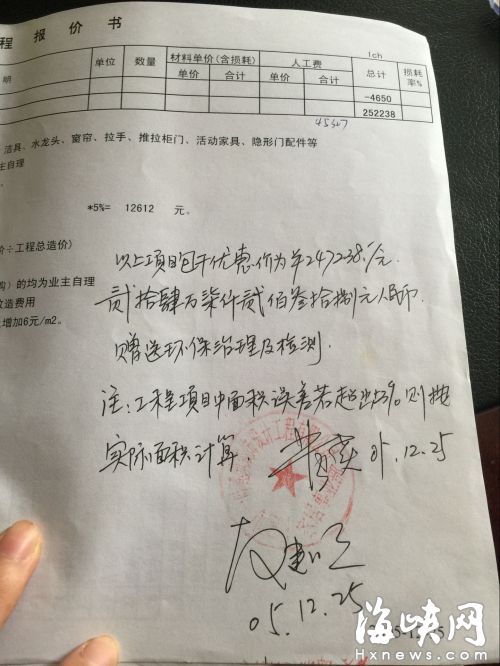 程 报 价 书
lch
明 单位 数量 材料单价(含损耗) 人工费 总计 损耗率%
单价 合计 单价 合计
-4650
252238
洁具、水龙头、窗帘、拉手、推拉柜门、活动家具、隐形门配件等
主自理
*5%= 12612 元。
价÷工程总造价）
购）的均为业主自理
改造费用
增加6元/m2。
以上项目包干优惠价为￥247238./元.
贰拾肆万柒仟贰佰叁拾捌元人民币.
赠送环保治理及检测.
注:工程项目中面积误差若超出5%则按
实际面积计算.
05.12.25
05.12.25
海峡网
Hxnews.com